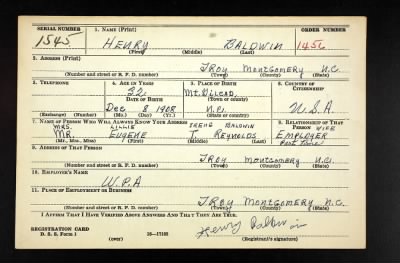 SERIAL NUMBER 1. NAME (Print) ORDER NUMBER
1545 HENRY BALDWIN 1456
(First) (Middle) (Last)
2. ADDRESS (Print)
TROY MONTGOMERY N.C.
(Number and street or R. F. D. number) (Town) (County) (State)
3. TELEPHONE 4. AGE IN YEARS 5. PLACE OF BIRTH 6. COUNTRY OF CITIZENSHIP
32 MT. GILEAD,
DATE OF BIRTH (Town or county)
Dec 8 1908 N.C. U.S.A
(Exchange) (Number) (Mo.) (Day) (Yr.) (State or country)
7. NAME OF PERSON WHO WILL ALWAYS KNOW YOUR ADDRESS 8. RELATIONSHIP OF THAT PERSON WIFE
MRS. LILLIE IRENE BALDWIN
MR. EUGENE T. REYNOLDS EMPLOYER
(Mr., Mrs., Miss) (First) (Middle) (Last) Part Time
9. ADDRESS OF THAT PERSON
TROY MONTGOMERY N.C.
(Number and street or R. F. D. number) (Town) (County) (State)
10. EMPLOYER'S NAME
W.P.A
11. PLACE OF EMPLOYMENT OR BUSINESS
TROY MONTGOMERY N.C.
(Number and street or R. F. D. number) (Town) (County) (State)
I AFFIRM THAT I HAVE VERIFIED ABOVE ANSWERS AND THAT THEY ARE TRUE.
REGISTRATION CARD
D. S. S. Form 1 16—17105 Henry Baldwin
(over) (Registrant's signature)